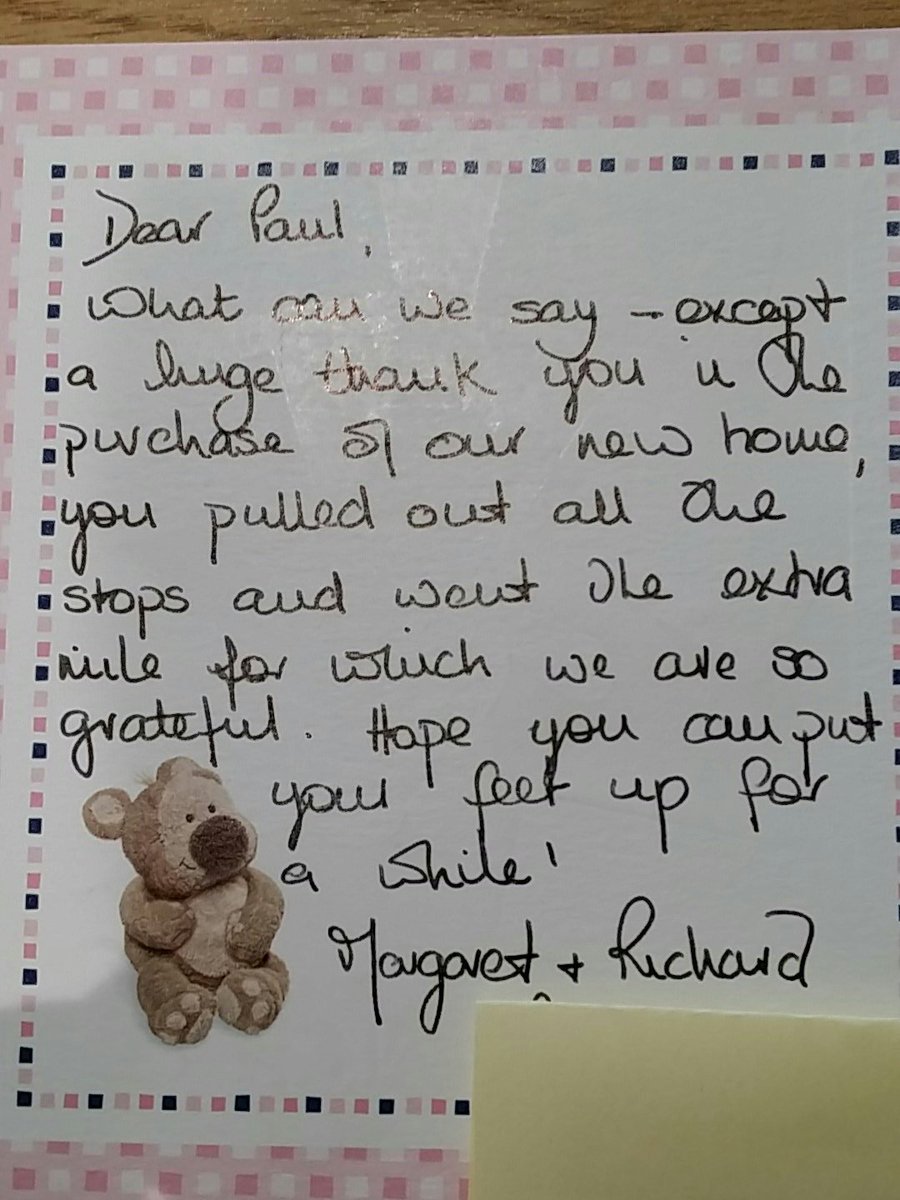 Dear Paul,
What can we say - except
a huge thank you in the
purchase of our new home,
you pulled out all the
stops and went the extra
mile for which we are so
grateful. Hope you can put
your feet up for
a while!
Margaret + Richard